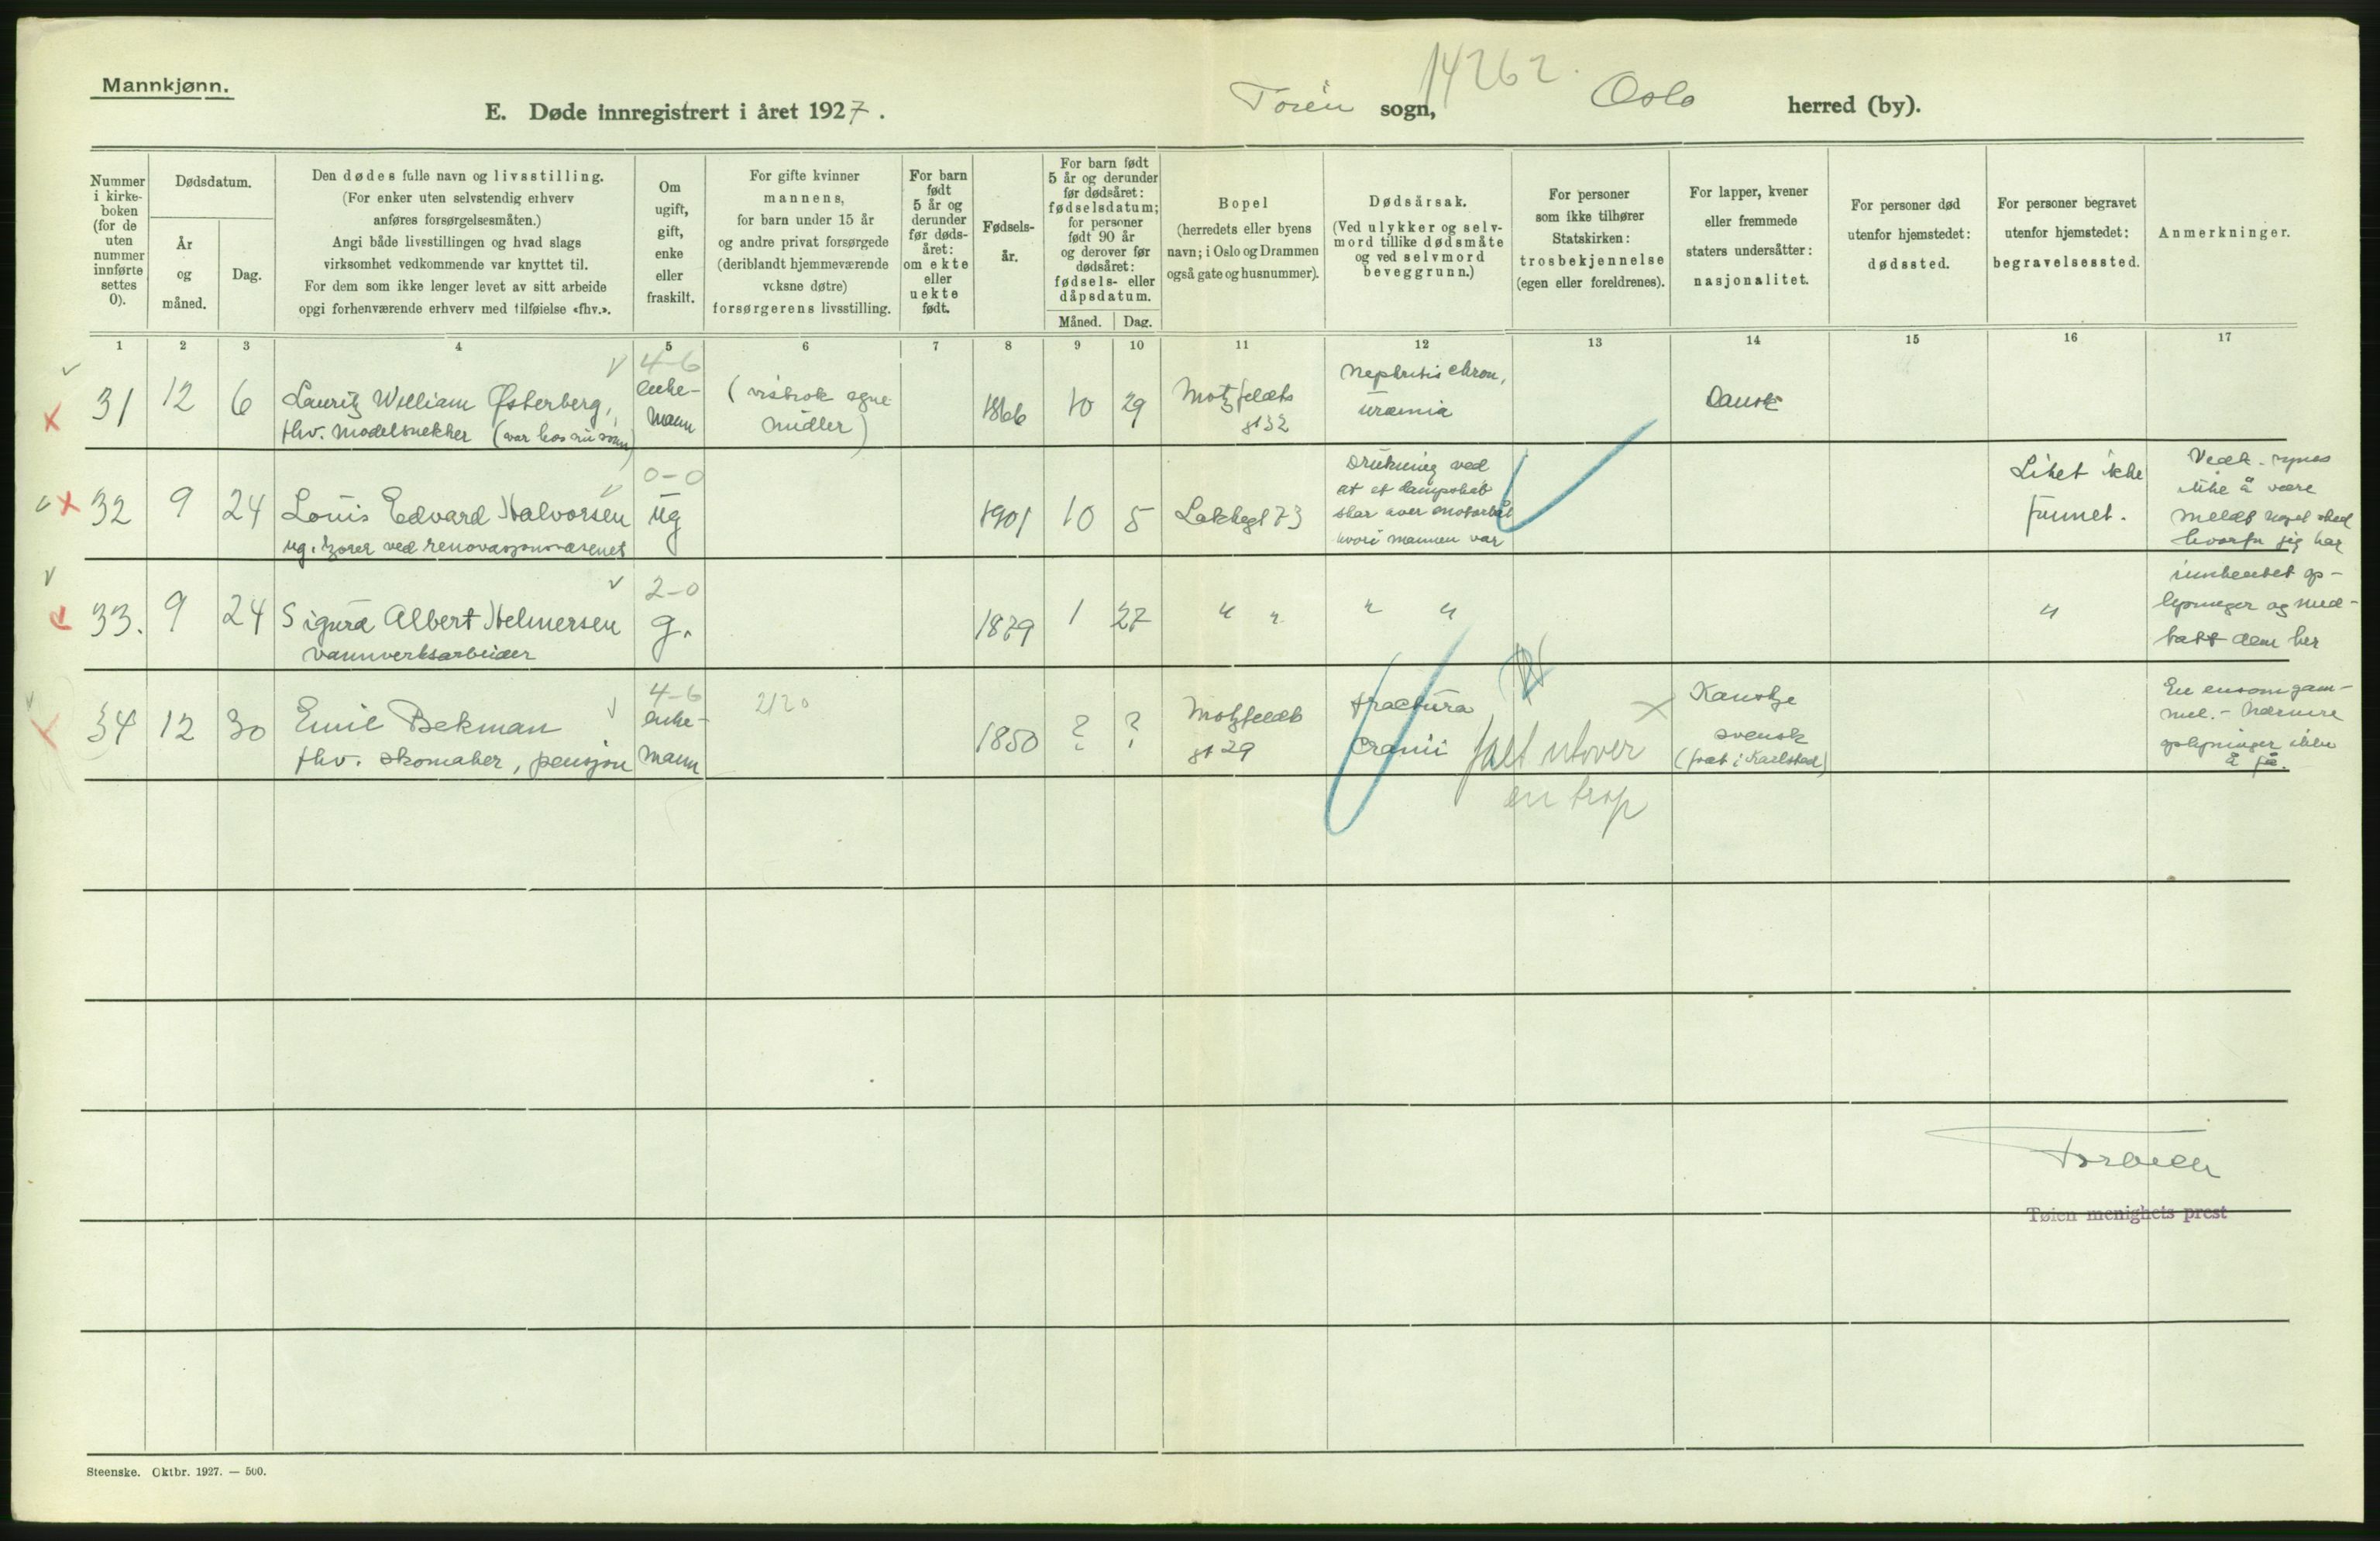 Mannkjønn.
E. Døde innregistrert i året 1927.
Tøien sogn,
14262.
Oslo herred (by).
Nummer i kirkeboken (for de uten nummer innførte settes 0).
Dødsdatum.
År og måned.
Dag.
Den dødes fulle navn og livsstilling.
(For enker uten selvstendig erhverv
anføres forsørgelsesmåten.)
Angi både livsstillingen og hvad slags
virksomhet vedkommende var knyttet til.
For dem som ikke lenger levet av sitt arbeide
opgi forhenværende erhverv med tilføielse «fhv.».
Om ugift, gift, enke eller fraskilt.
For gifte kvinner
mannens,
for barn under 15 år
og andre privat forsørgede
(deriblandt hjemmeværende
voksne døtre)
forsørgerens livsstilling.
For barn født 5 år og derunder før dødsåret: om ekte eller uekte født.
Fødselsår.
For barn født
5 år og derunder
før dødsåret:
fødselsdatum;
for personer
født 90 år
og derover før
dødsåret:
fødsels- eller
dåpsdatum.
Måned. Dag.
Bopel
(herredets eller byens
navn; i Oslo og Drammen
også gate og husnummer).
Dødsårsak.
(Ved ulykker og selv-
mord tillike dødsmåte
og ved selvmord
beveggrunn.)
For personer
som ikke tilhører
Statskirken:
trosbekjennelse
(egen eller foreldrenes).
For lapper, kvener
eller fremmede
staters undersåtter:
nasjonalitet.
For personer død
utenfor hjemstedet:
dødssted.
For personer begravet
utenfor hjemstedet:
begravelsessted.
Anmerkninger.
1 2 3 4 5 6 7 8 9 10 11 12 13 14 15 16 17
31 12 6 Lauritz William Østerberg,
fhv. modelsnekker (var hos sin sønn)
4-6
enke-
mann
(visstnok egne
midler)
1866 10 29
Motzfeldts
gt 32
Nephritis chron,
uræmia
Dansk
32 9 24 Louis Edvard Halvorsen
ug. kjører ved renovasjonsvæsenet
0-0
ug
1901 10 5 Lakkegt 73
Drukning ved
at et dampskib
skar over motorbåt
hvori mannen var
Liket ikke
funnet.
Vedk. synes
ikke å være
meldt noget sted
hvorfor jeg har
33. 9 24 Sigurd Albert Helmersen
vannverksarbeider
2-0
g.
1879 1 27 " " " " "
innhentet op-
lysninger og med-
tatt dem her
34 12 30 Emil Bekman
fhv. skomaker, pensjon
4-6
enke-
mann
2120
1850 ? ?
Motzfeldts
gt 29
Fractura
cranii
falt utover
en trap
Kanskje
svensk
(født i Karlstad)
En ensom gam-
mel. - Nærmere
oplysninger ikke
å få.
Tøien menighets prest
Steenske. Oktbr. 1927. — 500.